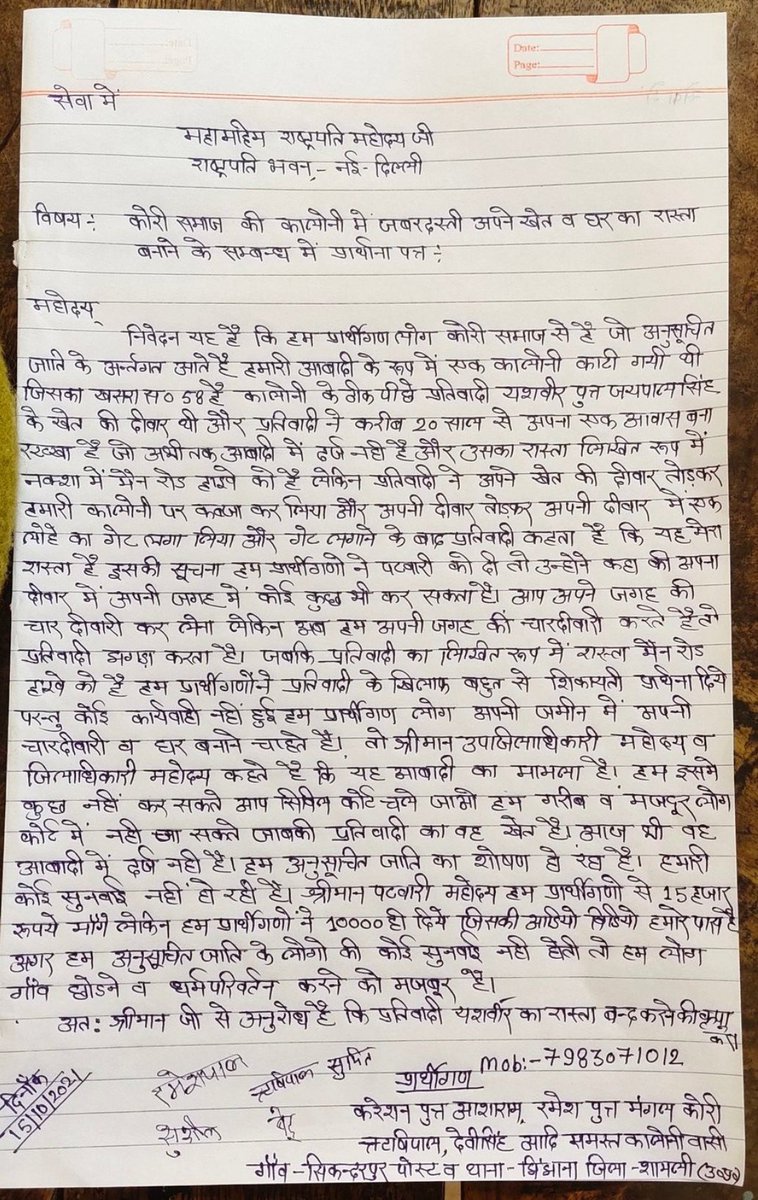 Date:
Page:
सेवा में
महामहिम राष्ट्रपति महोदय जी
राष्ट्रपति भवन,- नई-दिल्ली
विषय:- कोरी समाज की कालोनी में जबरदस्ती अपने खेत व घर का रास्ता
बनाने के सम्बन्ध में प्रार्थाना पत्र:-
महोदय,
निवेदन यह है कि हम प्रार्थीगण लोग कोरी समाज से है जो अनुसूचित
जाति के अर्न्तगत आते है हमारी आबादी के रूप में एक कालोनी काटी गयी थी
जिसका खसरा स० 58 है कालोनी के ठीक पीछे प्रतिवादी यशवीर पुत्र जयपाल सिंह
के खेत की दीवार थी और प्रतिवादी ने करीब 20 साल से अपना एक आवास बना
रख्खा है जो अभी तक आबादी में दर्ज नही है और उसका रास्ता लिखित रूप में
नक्शा में मैन रोड हाइवे को है लेकिन प्रतिवादी ने अपने खेत की दीवार तोडकर
हमारी कालोनी पर कब्जा कर लिया और अपनी दीवार तोडकर अपनी दीवार में एक
लोहे का गेट लगा लिया और गेट लगाने के बाद प्रतिवादी कहता है कि यह मेरा
रास्ता है इसकी सूचना हम प्रार्थीगणों ने पटवारी को दी तो उन्होने कहा की अपना
दीवार में अपनी जगह में कोई कुछ भी कर सकता है। आप अपने जगह की
चार दीवारी कर लेना लेकिन अब हम अपनी जगह की चारदीवारी करते है तो
प्रतिवादी झगडा करता है। जबकि प्रतिवादी का लिखित रूप में रास्ता मैन रोड
हाइवे को है हम प्रार्थीगणोंने प्रतिवादी के खिलाफ बहुत से शिकायती प्रार्थना दिये
परन्तु कोई कार्यवाही नहीं हुई हम प्रार्थीगण लोग अपनी जमीन में अपनी
चारदीवारी व घर बनाने चाहते है। तो श्रीमान उपजिलाधिकारी महोदय व
जिलाधिकारी महोदय कहते है कि यह आबादी का मामला है। हम इसमे
कुछ नहीं कर सकते आप सिविल कोर्ट चले जाओ हम गरीब व मजदूर लोग
कोर्ट में नही जा सकते जाबकी प्रतिवादी का वह खेत है। आज भी वह
आबादी में दर्ज नही है। हम अनुसूचित जाति का शोषण हो रहा है। हमारी
कोई सुनवाई नहीं हो रही है। श्रीमान पटवारी महोदय हम प्रार्थीगणो से 15 हजार
रूपये मांगे लेकिन हम प्रार्थीगणों ने 10000 ही दिये जिसकी आडियो विडियो हमारे पास है
अगर हम अनुसूचित जाति के लोगो की कोई सुनवाई नही होती तो हम लोग
गाँव छोडने व धर्मपरिवर्तन करने को मजबूर है।
अत: श्रीमान जी से अनुरोध है कि प्रतिवादी यशवीर का रास्ता बन्द करने की कृपा
करे।
दिनाँक
15/10/2021
रमेशपाल ऋषिपाल सुमित
सुशील
प्रार्थीगण Mob:-7983071012
करेशन पुत्र आशाराम, रमेश पुत्र मंगल कोरी
ऋषिपाल, देवीसिंह आदि समस्त कालोनी वासी
गाँव-सिकन्दरपुर पोस्ट व थाना-झिंझाना जिला-शामली (उ०प्र०)